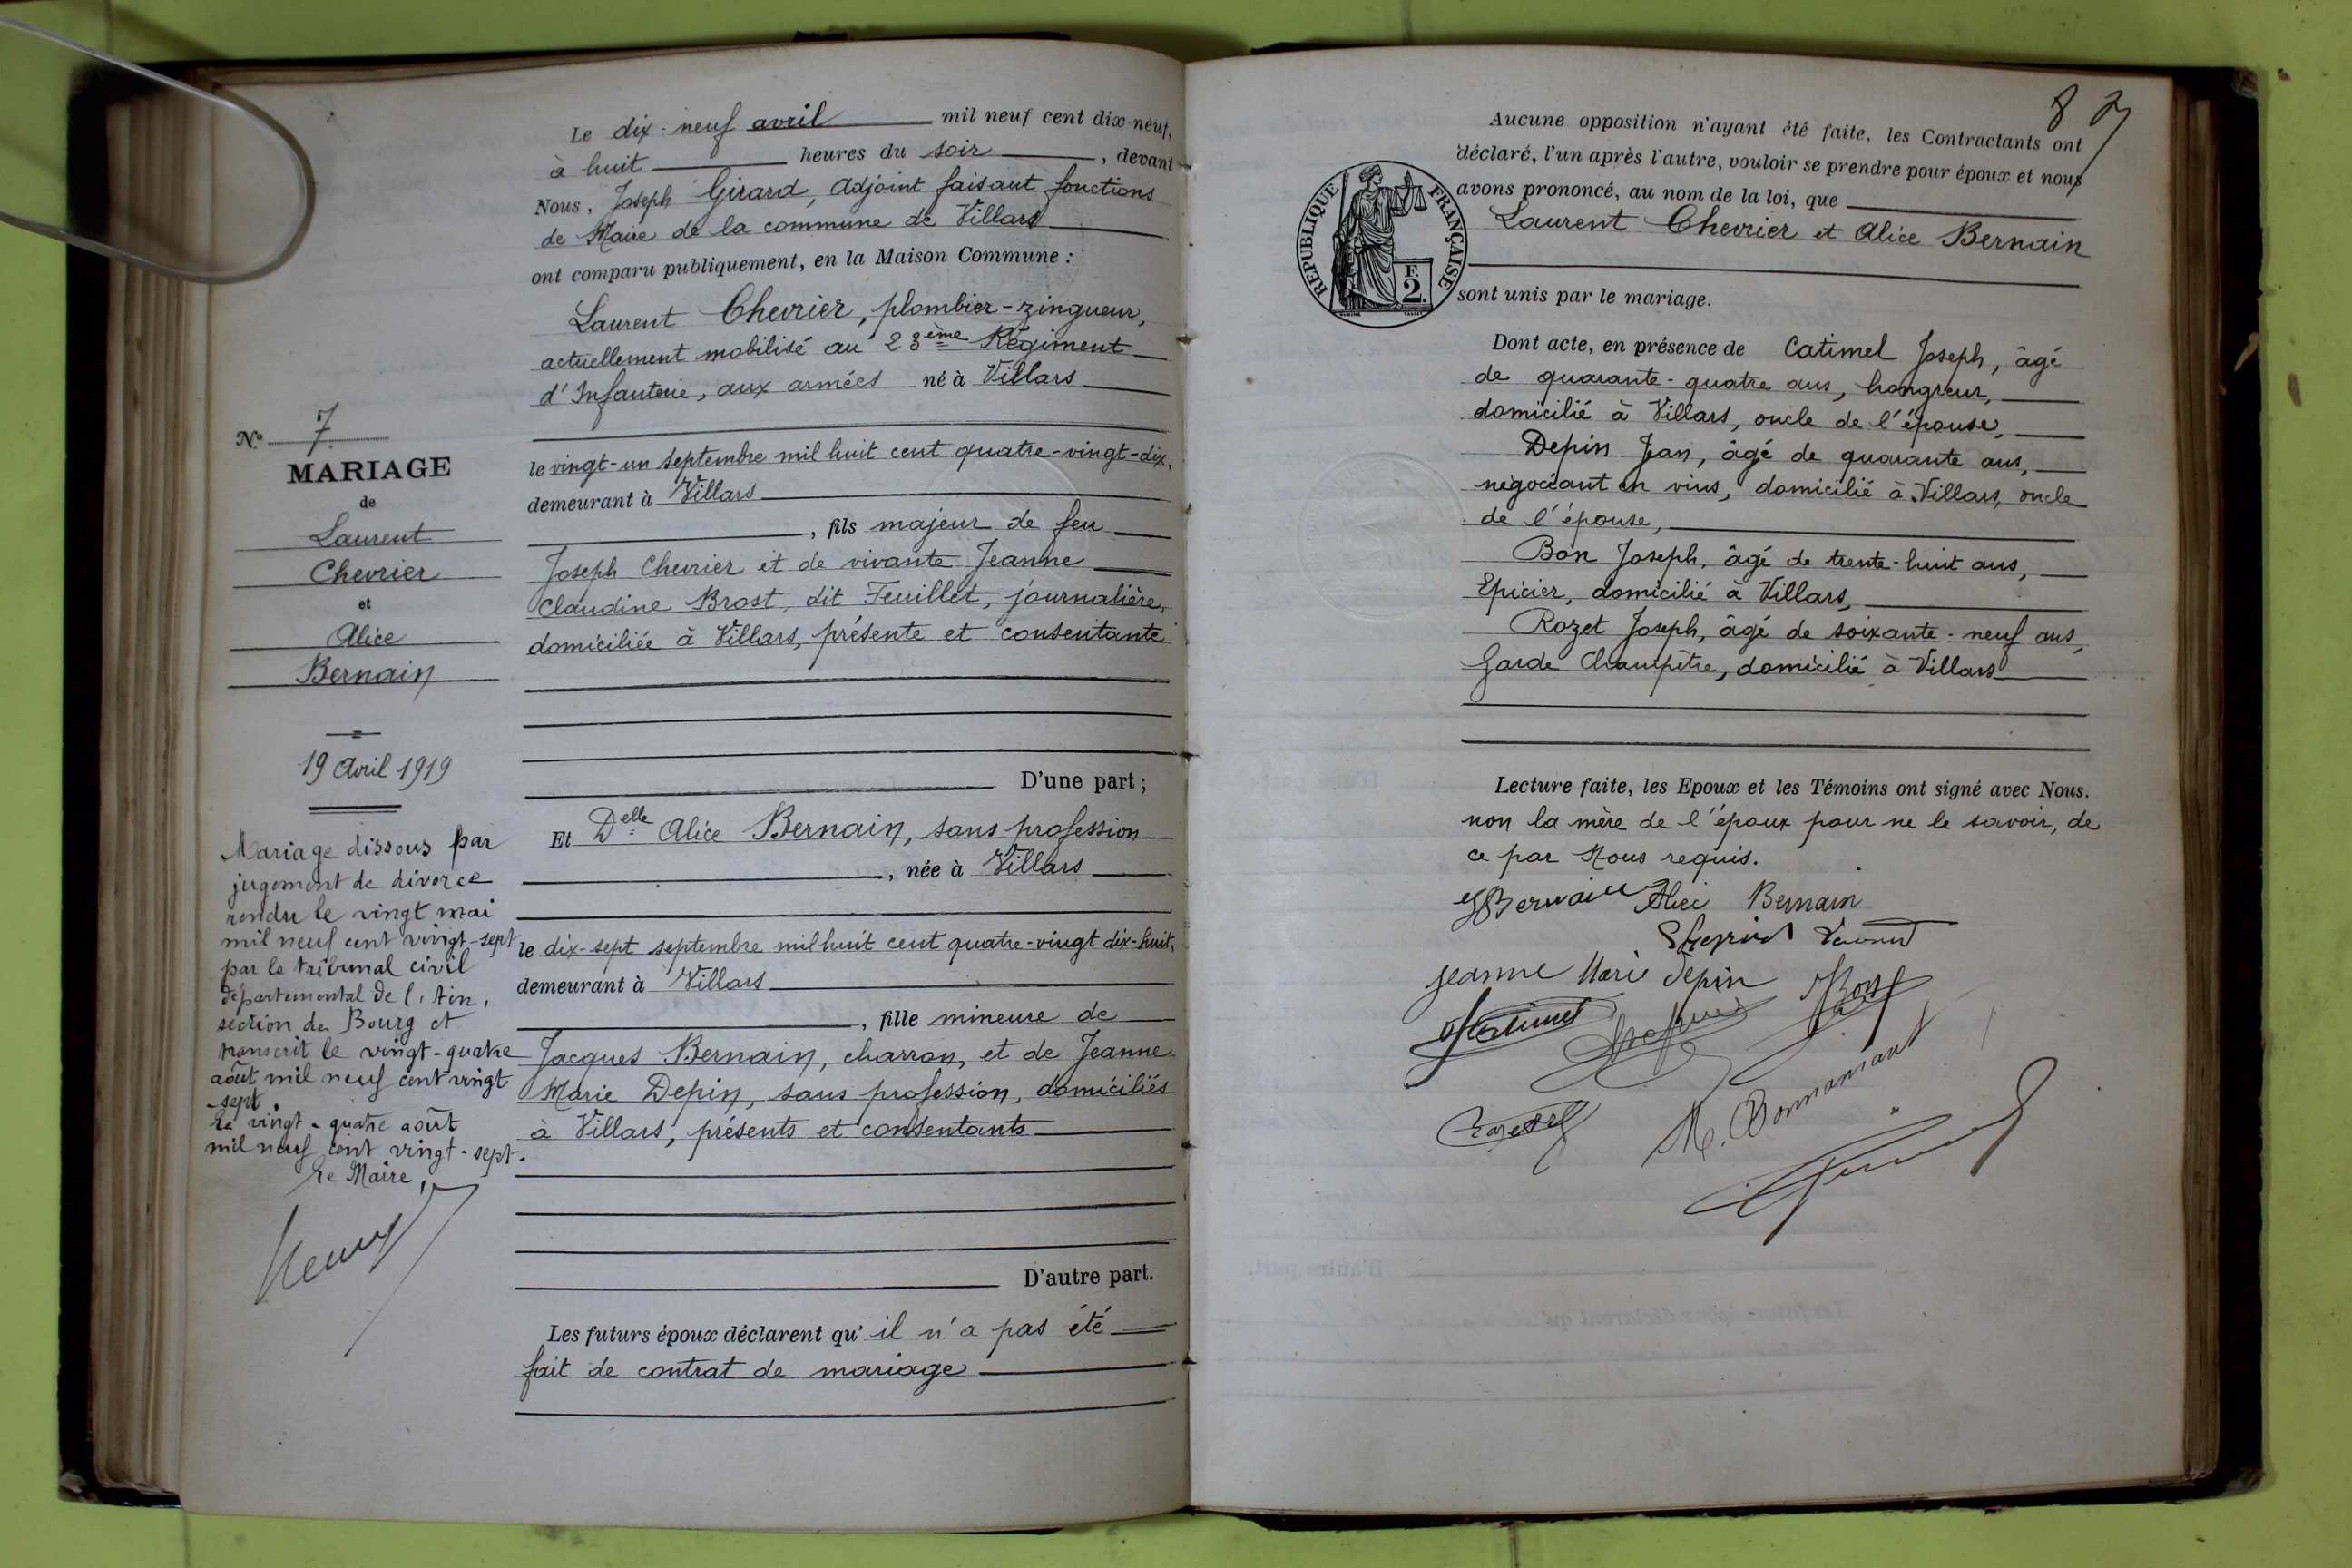 Le dix-neuf avril mil neuf cent dix-neuf,
à huit heures du soir, devant
Nous, Joseph Girard, Adjoint faisant fonctions
de Maire de la commune de Villars
ont comparu publiquement, en la Maison Commune :
Laurent Chevrier, plombier-zingueur,
actuellement mobilisé au 23ème Régiment
d'Infanterie, aux armées né à Villars
le vingt-un septembre mil huit cent quatre-vingt-dix,
demeurant à Villars
, fils majeur de feu
Joseph Chevrier et de vivante Jeanne
Claudine Brost, dit Feuillet, journalière,
domiciliée à Villars, présente et consentante
D'une part ;
Et Delle Alice Bernain, sans profession
, née à Villars
le dix-sept septembre mil huit cent quatre-vingt dix-huit,
demeurant à Villars
, fille mineure de
Jacques Bernain, charron, et de Jeanne
Marie Depin, sans profession, domiciliés
à Villars, présents et consentants
D'autre part.
Les futurs époux déclarent qu'il n'a pas été
fait de contrat de mariage
N° 7
MARIAGE
de
Laurent
Chevrier
et
Alice
Bernain
19 Avril 1919
Mariage dissous par
jugement de divorce
rendu le vingt mai
mil neuf cent vingt-sept
par le tribunal civil
départemental de l'Ain,
section de Bourg et
transcrit le vingt-quatre
août mil neuf cent vingt
-sept.
Le vingt-quatre août
mil neuf cent vingt-sept.
Le Maire,
8
RÉPUBLIQUE FRANÇAISE
F.
2.
Aucune opposition n'ayant été faite, les Contractants ont
déclaré, l'un après l'autre, vouloir se prendre pour époux et nous
avons prononcé, au nom de la loi, que
Laurent Chevrier et Alice Bernain
sont unis par le mariage.
Dont acte, en présence de Catimel Joseph, âgé
de quarante-quatre ans, hongreur,
domicilié à Villars, oncle de l'épouse,
Depin Jean, âgé de quarante ans,
négociant en vins, domicilié à Villars, oncle
de l'épouse,
Bon Joseph, âgé de trente-huit ans,
Epicier, domicilié à Villars,
Rozet Joseph, âgé de soixante-neuf ans,
Garde Champêtre, domicilié à Villars
Lecture faite, les Epoux et les Témoins ont signé avec Nous.
non la mère de l'époux pour ne le savoir, de
ce par Nous requis.
Bernain Alice Bernain
Chevrier Laurent
Jeanne Marie Depin Bon
Catimel
Rozet
M. Bonnamant